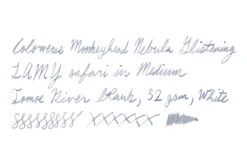 Colorverse Monkeyhead Nebula Glistening
LAMY safari in Medium
Tomoe River Blank, 52 gsm, White